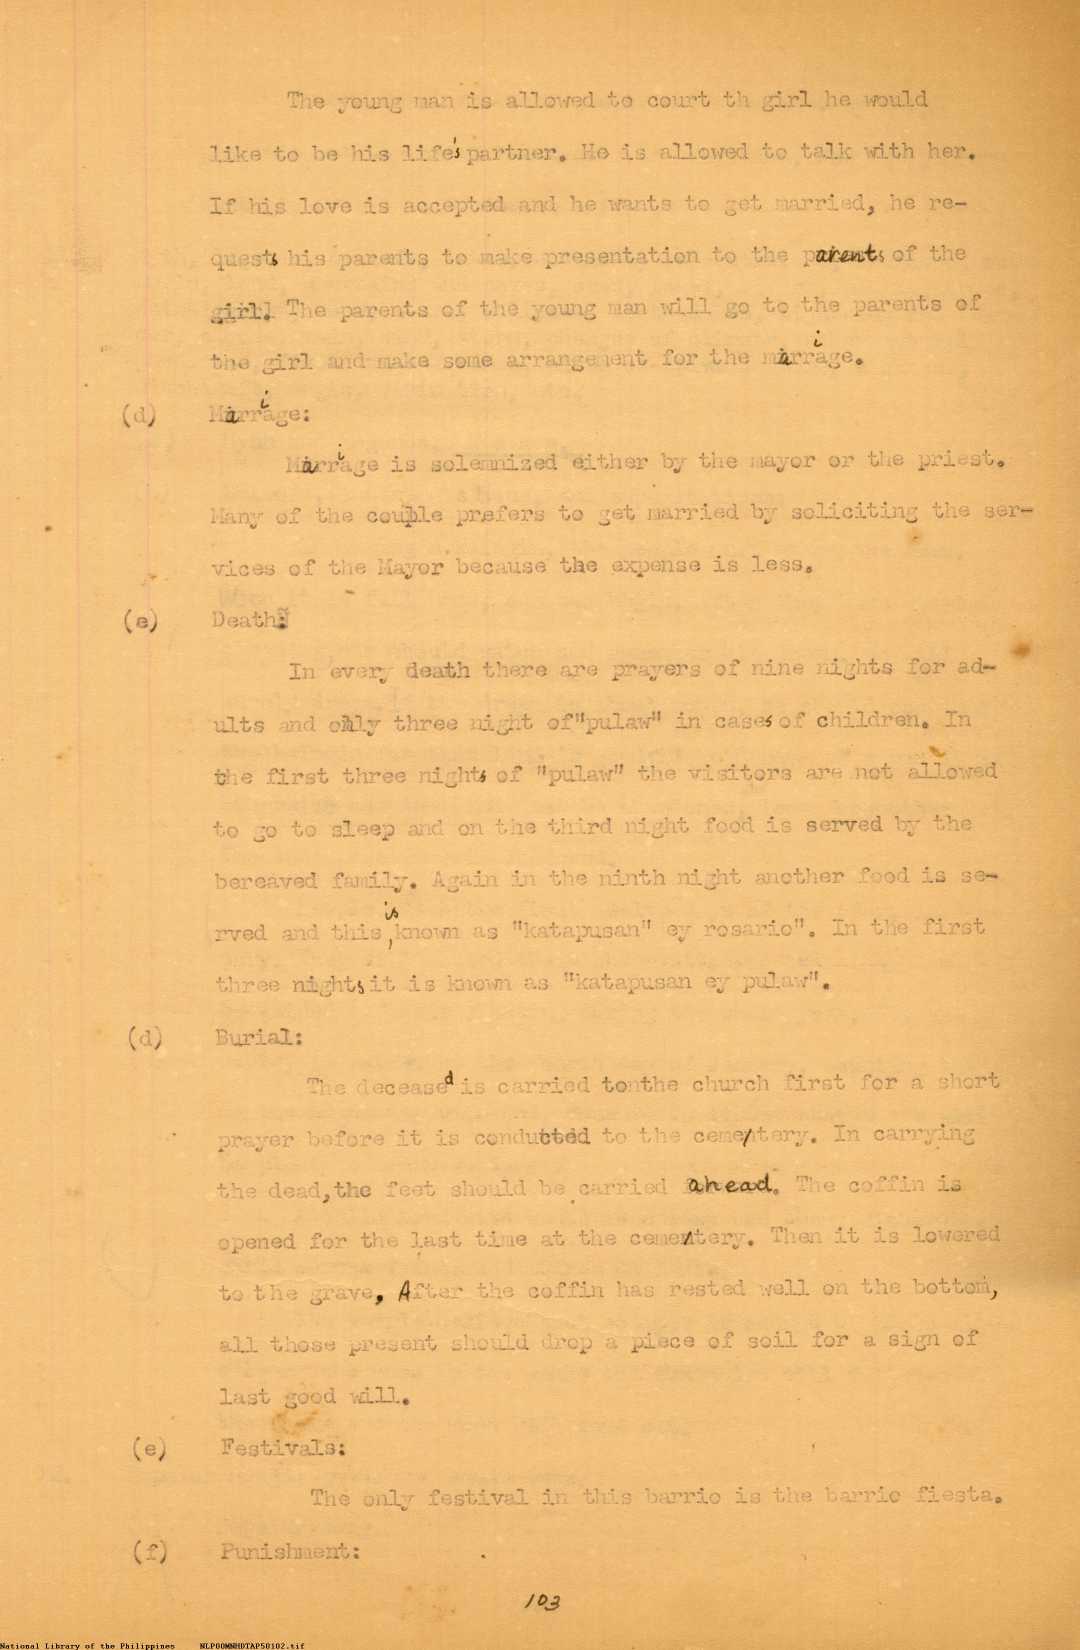 The young man is allowed to court th girl he would
like to be his life's partner. He is allowed to talk with her.
If his love is accepted and he wants to get married, he re-
quests his parents to make presentation to the parents of the
girl. The parents of the young man will go to the parents of
the girl and make some arrangement for the marriage.
(d) Marriage:
Marriage is solemnized either by the mayor or the priest.
Many of the couple prefers to get married by soliciting the ser-
vices of the Mayor because the expense is less.
(e) Death:
In every death there are prayers of nine nights for ad-
ults and only three night of "pulaw" in cases of children. In
the first three nights of "pulaw" the visitors are not allowed
to go to sleep and on the third night food is served by the
bereaved family. Again in the ninth night another food is se-
rved and this is known as "katapusan" ey rosario". In the first
three nights it is known as "katapusan ey pulaw".
(d) Burial:
The deceased is carried tonthe church first for a short
prayer before it is conducted to the cemetery. In carrying
the dead, the feet should be carried ahead. The coffin is
opened for the last time at the cemetery. Then it is lowered
to the grave. After the coffin has rested well on the bottom,
all those present should drop a piece of soil for a sign of
last good will.
(e) Festivals:
The only festival in this barrio is the barrio fiesta.
(f) Punishment:
103
National Library of the Philippines NLPOOMNHDTAP50102.tif